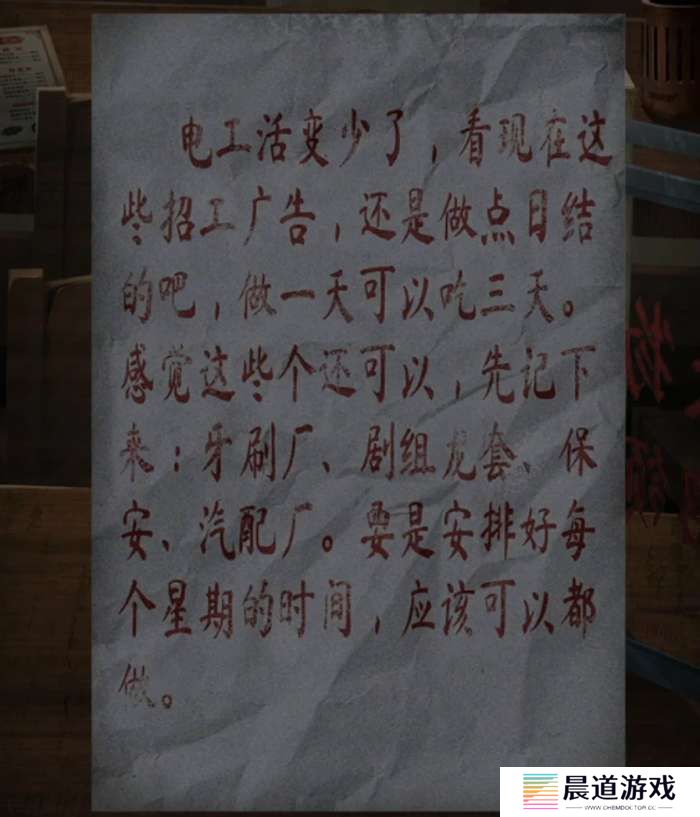 电工活变少了，看现在这
些招工广告，还是做点日结
的吧，做一天可以吃三天。
感觉这些个还可以，先记下
来：牙刷厂、剧组龙套、保
安、汽配厂。要是安排好每
个星期的时间，应该可以都
做。
晨道游戏
WWW.CHEMDOKTOR.COM.CC